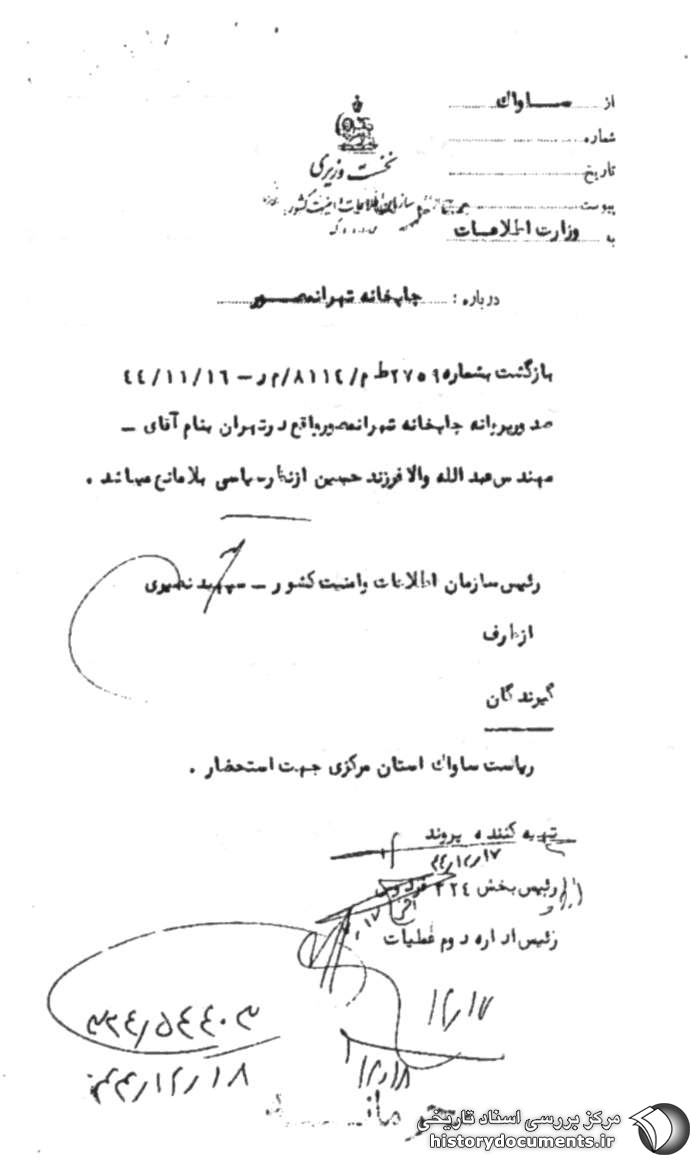 از ساواک
شماره
تاریخ
پیوست
به وزارت اطلاعات
نخست وزیری
سازمان اطلاعات و امنیت کشور
درباره : چاپخانه تهرانمصور
بازگشت بشماره ۲۷۵۹ط م/۸۱۱۴/م ر – ۴۴/۱۱/۱۶
صدور پروانه چاپخانه تهرانمصور واقع در تهران بنام آقای –
مهندس عبدالله والا فرزند حسین از نظر سیاسی بلامانع میباشد .
رئیس سازمان اطلاعات و امنیت کشور – سپهبد نصیری
از طرف
گیرندگان
ریاست ساواک استان مرکزی جهت استحضار .
تهیه کننده پروند
۴۴/۱۲/۱۷
رئیس بخش ۳۲۴
رئیس اداره دوم عملیات
۱۲/۱۷
۳۲۴/۵۴۴۰۳
۴۴/۱۲/۱۸
۱۲/۱۸
محرمانه
مرکز بررسی اسناد تاریخی
historydocuments.ir